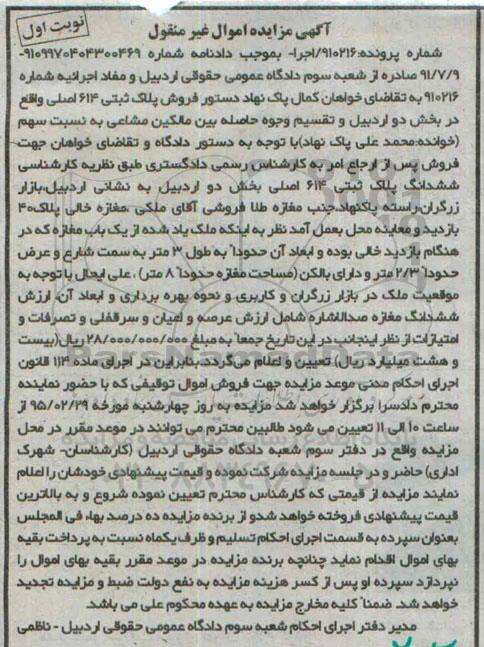 نوبت اول
آگهی مزایده اموال غیر منقول
شماره پرونده:۹۱۰۲۱۶/اجرا- بموجب دادنامه شماره ۹۱۰۹۹۷۰۴۰۴۳۰۰۴۶۹-
۹۱/۷/۹ صادره از شعبه سوم دادگاه عمومی حقوقی اردبیل و مفاد اجرائیه شماره
۹۱۰۲۱۶ به تقاضای خواهان کمال پاک نهاد دستور فروش پلاک ثبتی ۶۱۴ اصلی واقع
در بخش دو اردبیل و تقسیم وجوه حاصله بین مالکین مشاعی به نسبت سهم
(خوانده:محمد علی پاک نهاد)با توجه به دستور دادگاه و تقاضای خواهان جهت
فروش پس از ارجاع امر به کارشناس رسمی دادگستری طبق نظریه کارشناسی
ششدانگ پلاک ثبتی ۶۱۴ اصلی بخش دو اردبیل به نشانی اردبیل،بازار
زرگران،راسته پاکنهاد،جنب مغازه طلا فروشی آقای ملکی ،مغازه خالی پلاک۴۰
بازدید و معاینه محل بعمل آمد نظر به اینکه ملک یاد شده از یک باب مغازه که در
هنگام بازدید خالی بوده و ابعاد آن حدوداً به طول ۳ متر به سمت شارع و عرض
حدوداً ۲/۳ متر و دارای بالکن (مساحت مغازه حدوداً ۸ متر) ، علی ایحال با توجه به
موقعیت ملک در بازار زرگران و کاربری و نحوه بهره برداری و ابعاد آن، ارزش
ششدانگ مغازه صدالاشاره شامل ارزش عرصه و اعیان و سرقفلی و تصرفات و
امتیازات از نظر اینجانب در این تاریخ جمعاً به مبلغ ۲۸/۰۰۰/۰۰۰/۰۰۰ ریال(بیست
و هشت میلیارد ریال) تعیین و اعلام می‌گردد. بنابراین در اجرای ماده ۱۱۴ قانون
اجرای احکام مدنی موعد مزایده جهت فروش اموال توقیفی که با حضور نماینده
محترم دادسرا برگزار خواهد شد مزایده به روز چهارشنبه مورخه ۹۵/۰۲/۲۹ از
ساعت ۱۰ الی ۱۱ تعیین می شود طالبین محترم می توانند در موعد مقرر در محل
مزایده واقع در دفتر سوم شعبه دادگاه حقوقی اردبیل (کارشناسان- شهرک
اداری) حاضر و در جلسه مزایده شرکت نموده و قیمت پیشنهادی خودشان را اعلام
نمایند مزایده از قیمتی که کارشناس محترم تعیین نموده شروع و به بالاترین
قیمت پیشنهادی فروخته خواهد شدو از برنده مزایده ده درصد بهاء فی المجلس
بعنوان سپرده به قسمت اجرای احکام تسلیم و ظرف یکماه نسبت به پرداخت بقیه
بهای اموال اقدام نماید چنانچه برنده مزایده در موعد مقرر بقیه بهای اموال را
نپردازد سپرده او پس از کسر هزینه مزایده به نفع دولت ضبط و مزایده تجدید
خواهد شد. ضمناً کلیه مخارج مزایده به عهده محکوم علی می باشد.
مدیر دفتر اجرای احکام شعبه سوم دادگاه عمومی حقوقی اردبیل - ناظمی